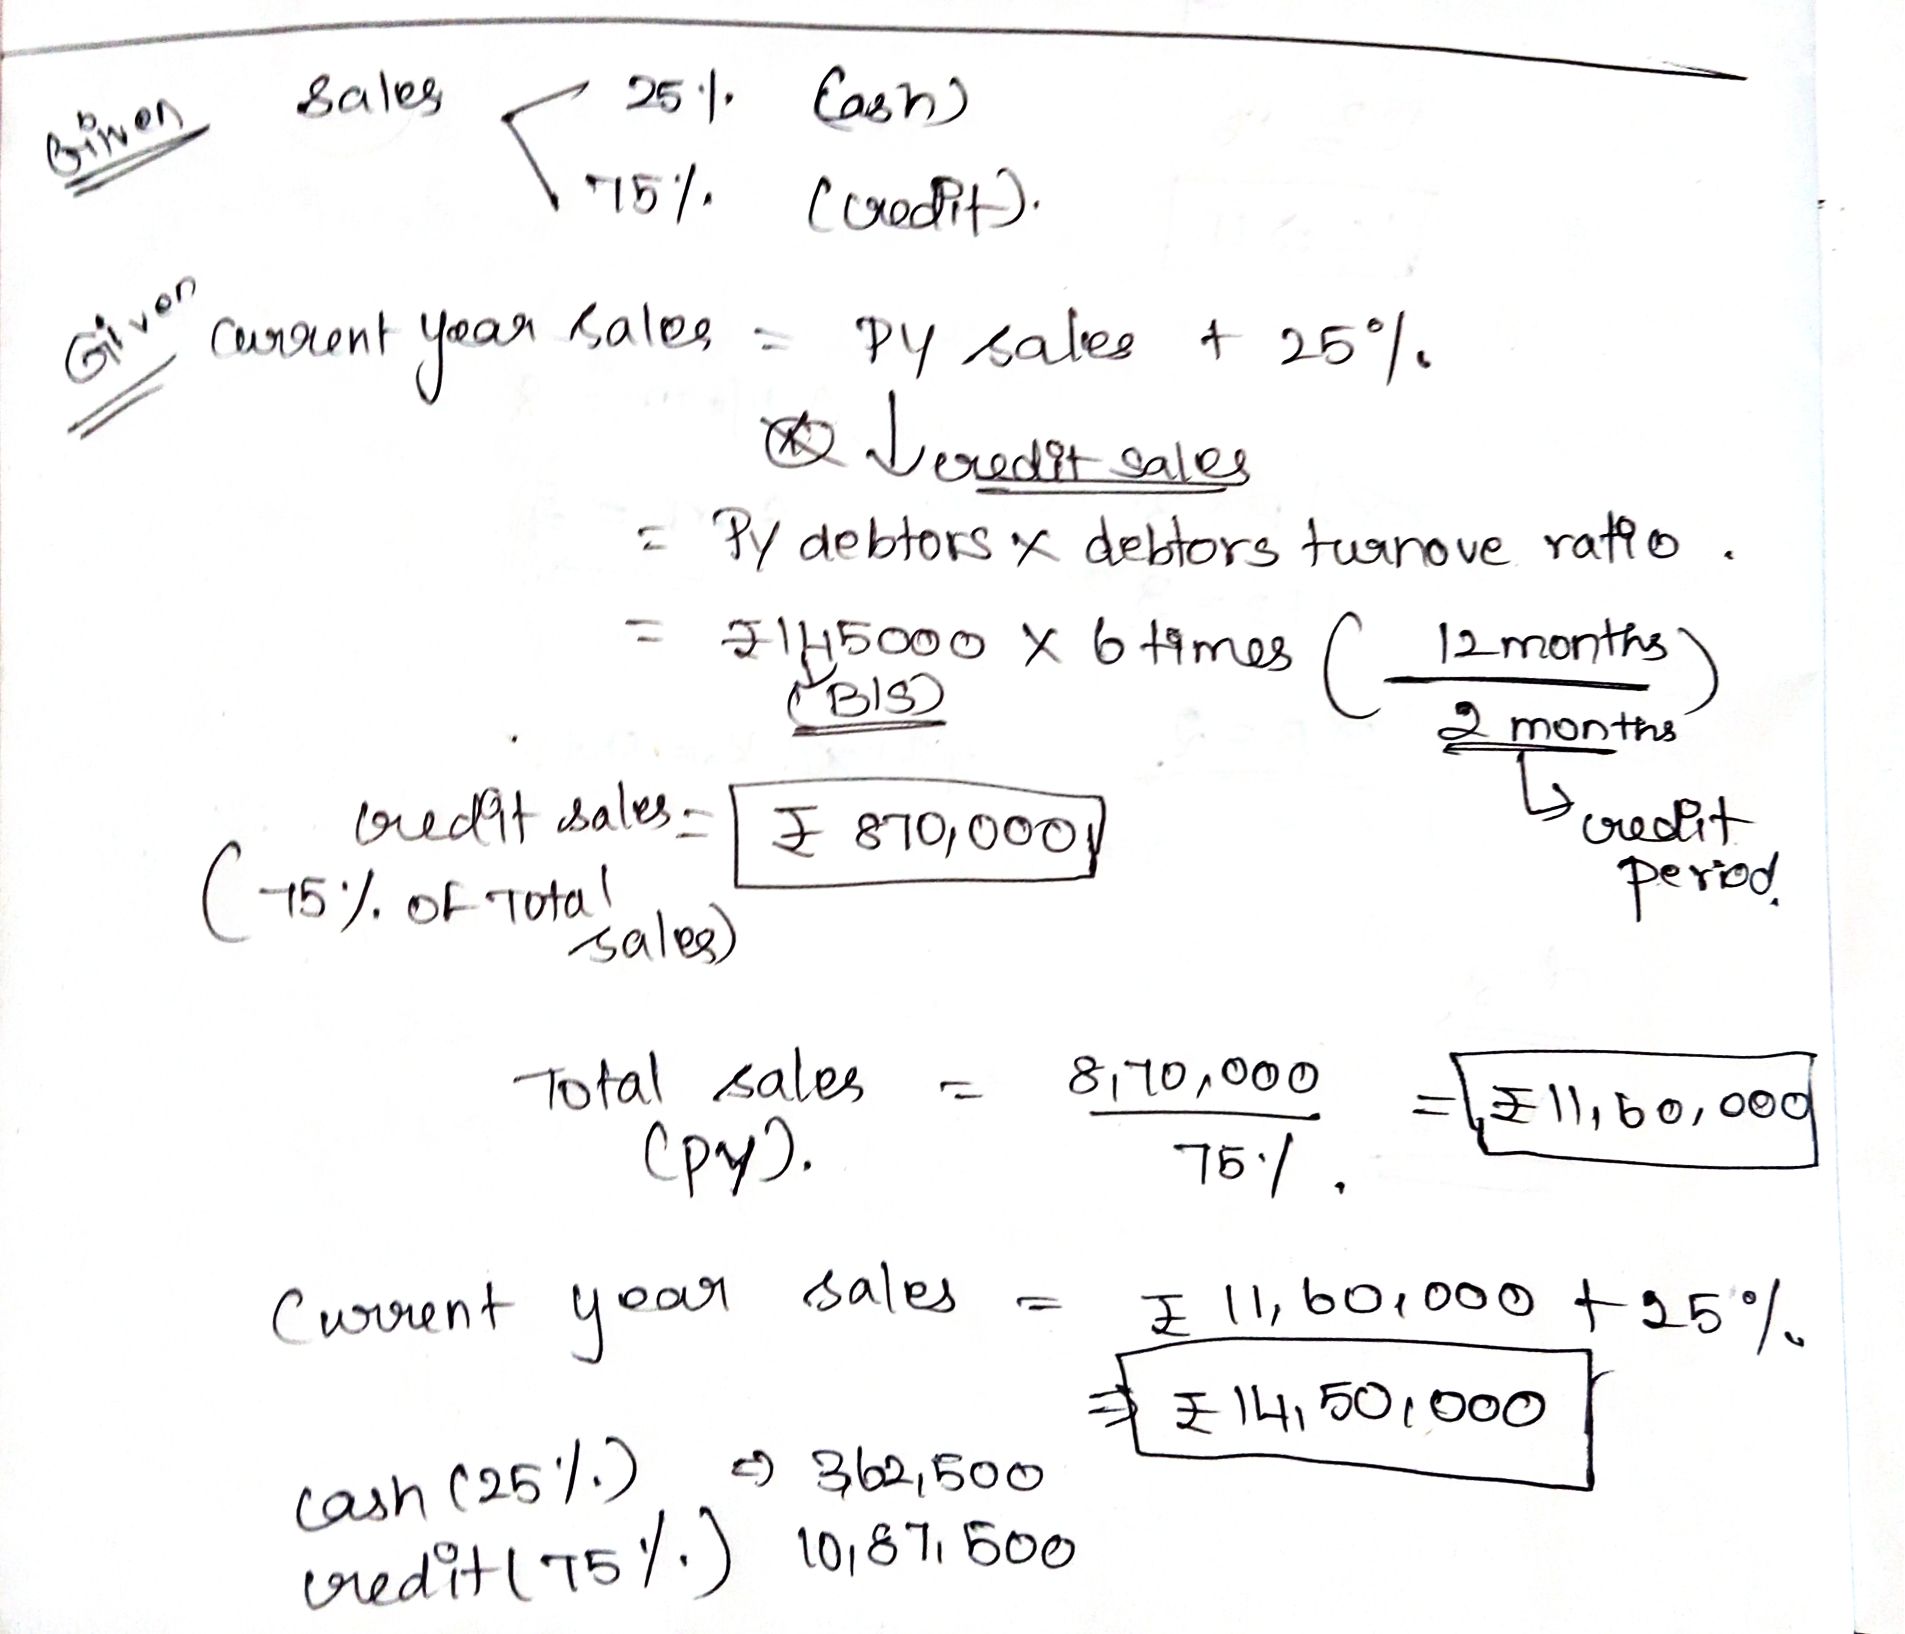 Given Sales 25% (Cash)
75% (credit).
Given Current year sales = PY sales + 25%.
credit sales
= Py debtors x debtors turnove ratio.
= ₹145000 x 6 times ( 12 months / 2 months )
(B/S)
credit period.
credit sales = ₹ 870,000
(75% of Total sales)
Total sales = 8,70,000 / 75%. = ₹11,60,000
(PY).
Current year sales = ₹ 11,60,000 + 25%.
⇒ ₹14,50,000
cash (25%.) ⇒ 362,500
credit (75%.) 10,87,500